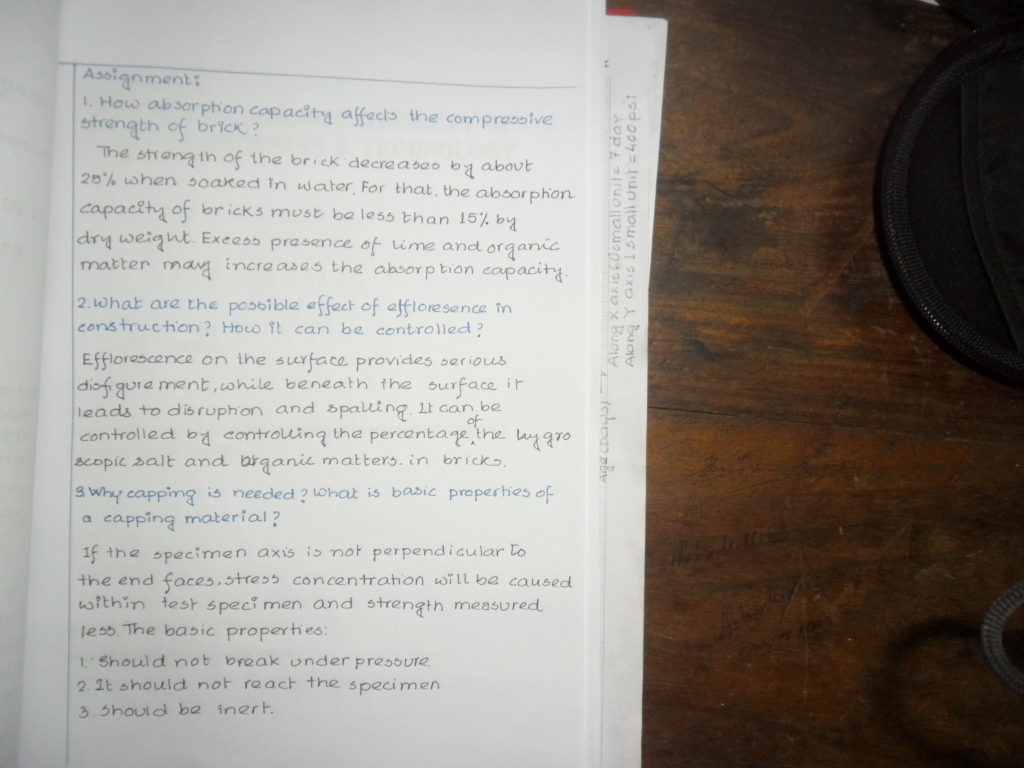 Assignment:
1. How absorption capacity affects the compressive
strength of brick?
The strength of the brick decreases by about
25% when soaked in water. For that, the absorption
capacity of bricks must be less than 15% by
dry weight. Excess presence of lime and organic
matter may increases the absorption capacity.
2. What are the possible effect of effloresence in
construction? How it can be controlled?
Efflorescence on the surface provides serious
disfigurement, while beneath the surface it
leads to disruption and spalling. It can be
controlled by controlling the percentage of the hygro
scopic salt and organic matters. in bricks.
3. Why capping is needed? What is basic properties of
a capping material?
If the specimen axis is not perpendicular to
the end faces, stress concentration will be caused
within test specimen and strength measured
less. The basic properties:
1. Should not break under pressure
2. It should not react the specimen
3. Should be inert.
Age (Days) →
Along X axis 60 small unit = 7 day
Along Y axis 1 small unit = 400 psi